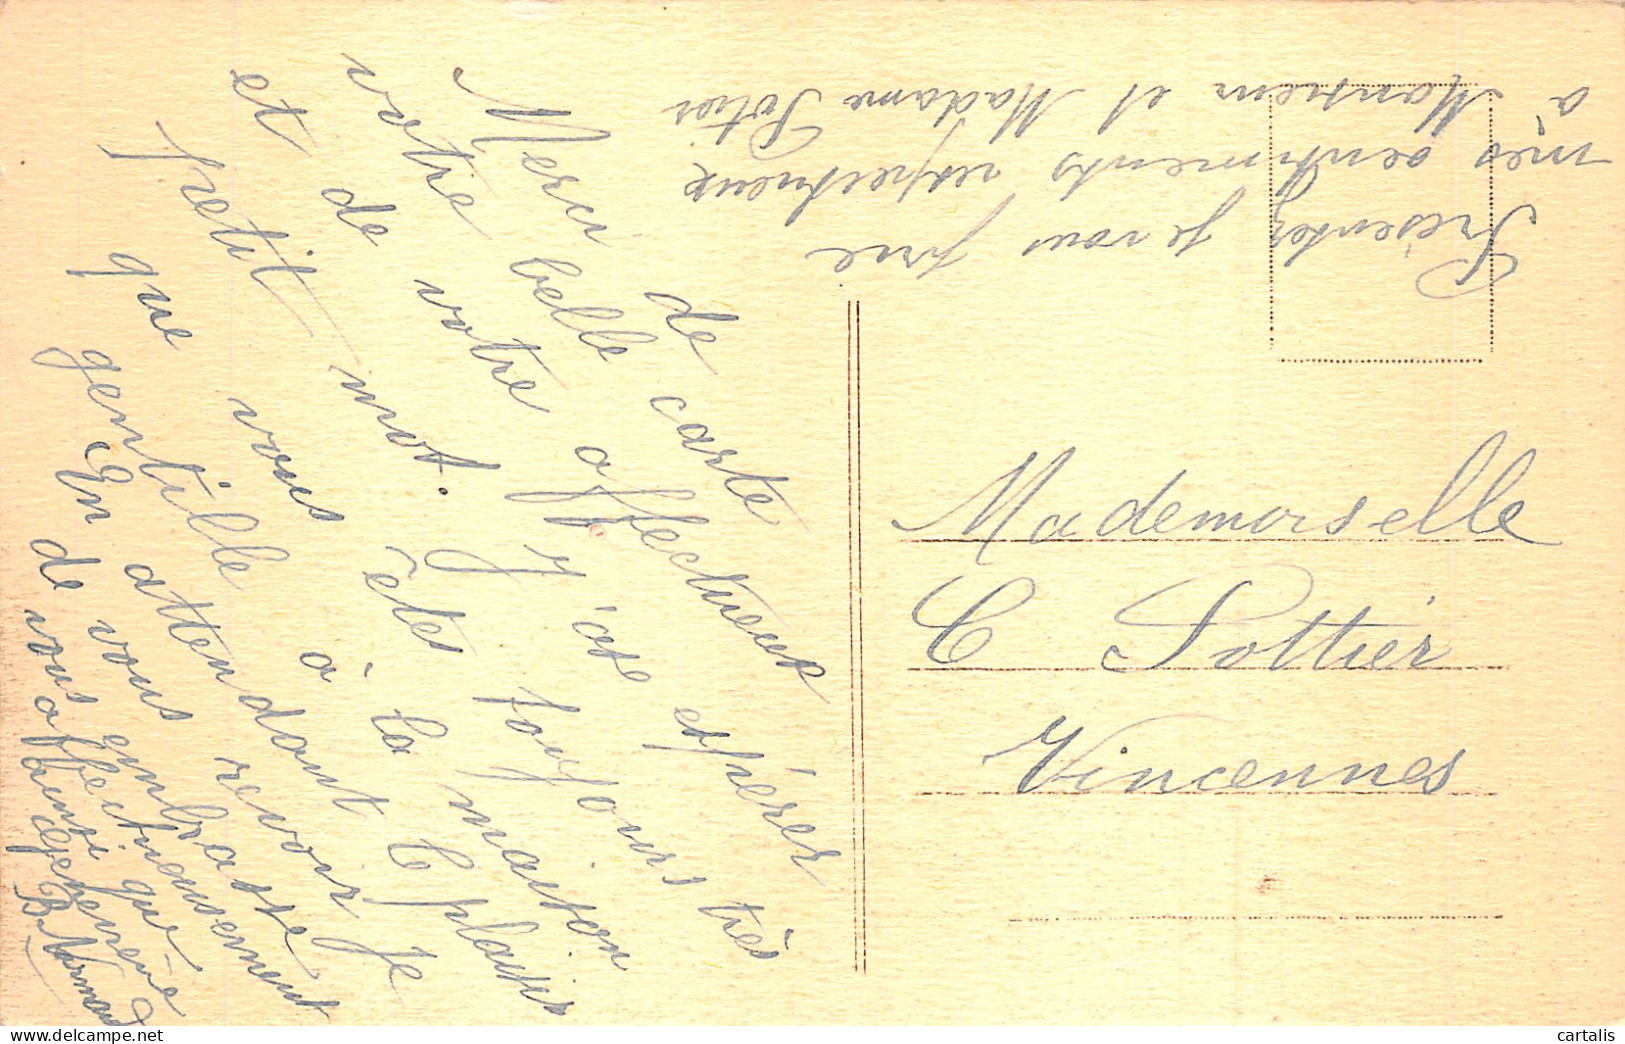 Merci de
votre belle carte
et de votre affectueux
petit mot. J'ose espérer
que vous êtes toujours très
gentille à la maison
En attendant le plaisir
de vous revoir je
vous embrasse
affectueusement
ainsi que
B Normand
Présentez je vous prie
mes sentiments respectueux
à Monsieur et Madame Potier
Mademoiselle
C Pottier
Vincennes
cartalis